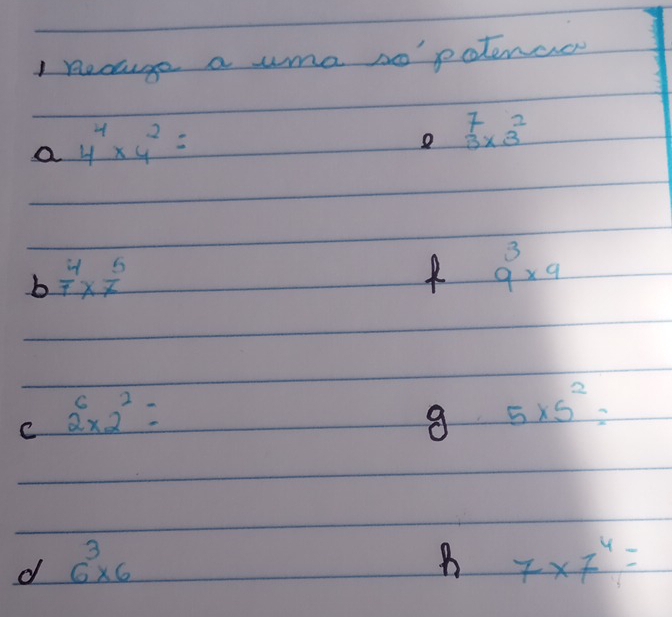 1 Reduza a uma só potencia
a 4⁴ × 4² =
e 3⁷ × 3²
b 7⁴ × 7⁵
f 9³ × 9
c 2⁶ × 2² =
g 5 × 5² =
d 6³ × 6
h 7 × 7⁴ =